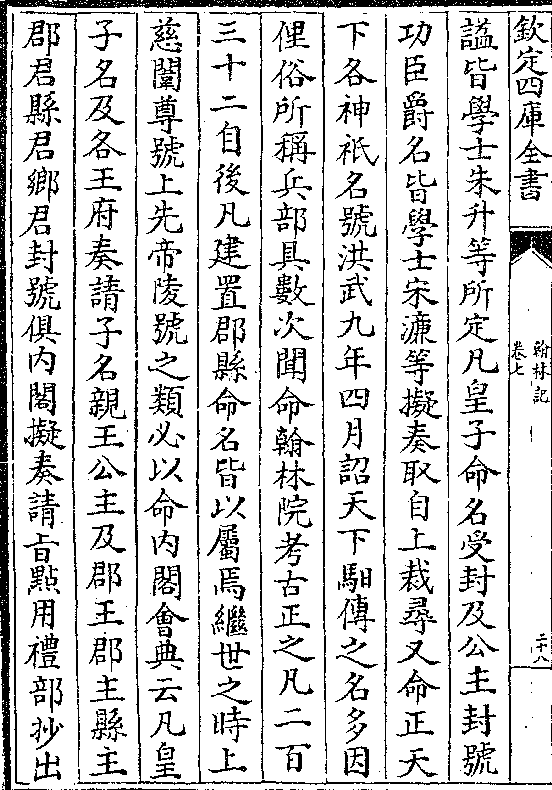 欽定四庫全書
翰林記
卷七
二十八
諡皆學士朱升等所定凡皇子命名受封及公主封號
功臣爵名皆學士宋濂等擬奏取自上裁尋又命正天
下各神祇名號洪武九年四月詔天下馹傳之名多因
俚俗所稱兵部具數次聞命翰林院考古正之凡二百
三十二自後凡建置郡縣命名皆以屬焉繼世之時上
慈闈尊號上先帝陵號之類必以命内閣會典云凡皇
子名及各王府奏請子名親王公主及郡王郡主縣主
郡君縣君鄉君封號俱内閣擬奏請旨點用禮部抄出